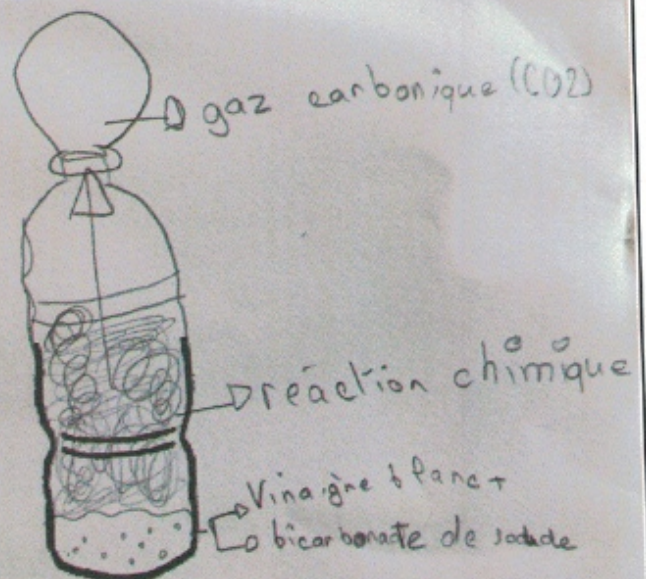 gaz carbonique (CO2)
réaction chimique
Vinaigre blanc +
bicarbonate de soude